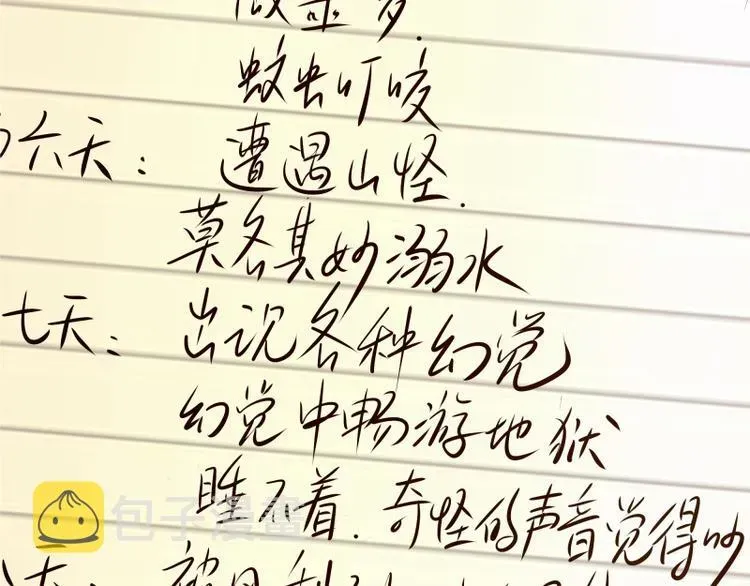 做噩梦.
蚊虫叮咬
六天: 遭遇山怪.
莫名其妙溺水
七天: 出现各种幻觉
幻觉中畅游地狱
睡不着. 奇怪的声音觉得吵
包子漫畫